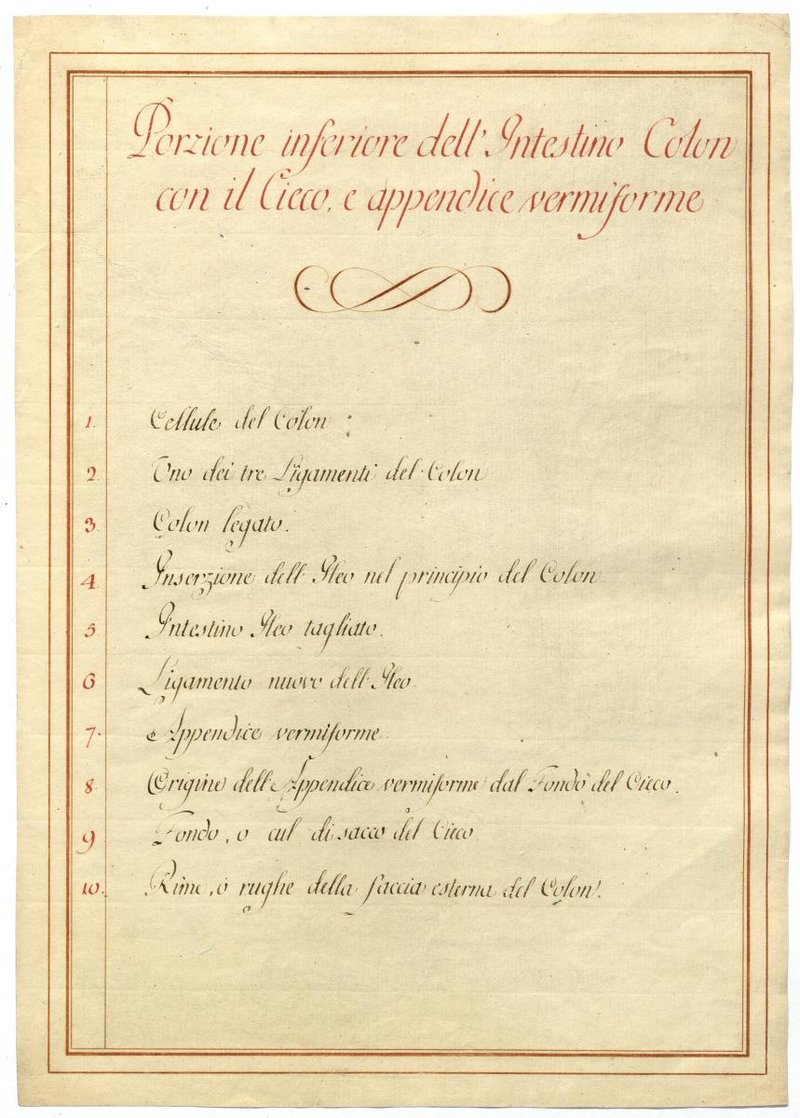 Porzione inferiore dell' Intestino Colon
con il Cieco, e appendice vermiforme
1. Cellule del Colon
2. Uno dei tre Ligamenti del Colon
3. Colon legato.
4. Inserzione dell' Ileo nel principio del Colon
5. Intestino Ileo tagliato.
6. Ligamento nuovo dell' Ileo.
7. Appendice vermiforme.
8. Origine dell' Appendice vermiforme dal Fondo del Cieco.
9. Fondo, o cul di sacco del Cieco
10. Rime, o rughe della faccia esterna del Colon.